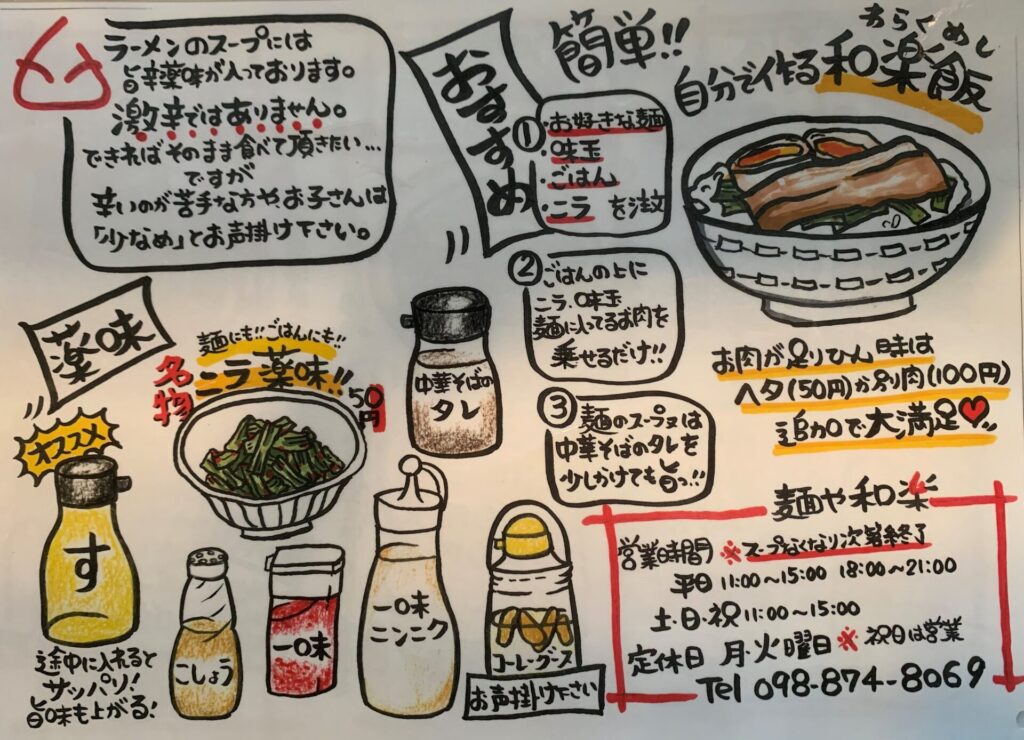 ラーメンのスープには
旨辛薬味が入っております。
激辛ではありません。
できればそのまま食べて頂きたい…
ですが
辛いのが苦手な方やお子さんは
「少なめ」とお声掛け下さい。
おすすめ
簡単!!
わらくめし
自分で作る和楽飯
①・お好きな麺
・味玉
・ごはん
・ニラ を注文
②ごはんの上に
ニラ、味玉
麺に入ってるお肉を
乗せるだけ!!
③麺のスープ又は
中華そばのタレを
少しかけても旨っ!!
お肉が足りひん時は
ヘタ(50円)か別肉(100円)
追加で大満足♥!!
薬味
麺にも!!ごはんにも!!
名物
ニラ薬味!!
50円
オススメ
す
途中に入れると
サッパリ!
旨味も上がる!
こしょう
一味
一味
ニンニク
中華そばの
タレ
コーレーグース
お声掛け下さい
麺や和楽
営業時間 ※スープなくなり次第終了
平日 11:00~15:00 18:00~21:00
土・日・祝 11:00~15:00
定休日 月・火曜日 ※祝日は営業
Tel 098-874-8069